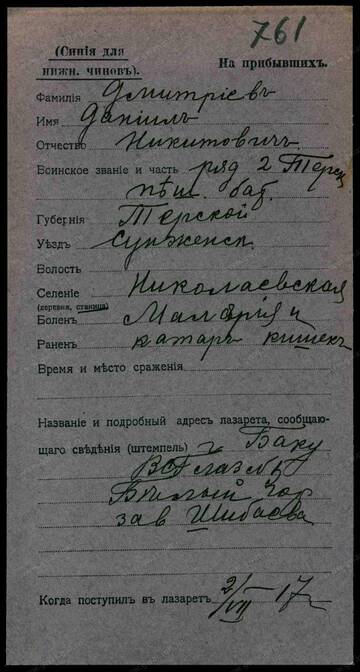 761
(Синія для
нижн. чиновъ).
На прибывшихъ.
Фамилія Дмитріевъ
Имя Даніилъ
Отчество Никитовичъ
Воинское званіе и часть ряд 2 Терск
пѣш. бат.
Губернія Терской
Уѣздъ Сунженск.
Волость
Селеніе Николаевская
(деревня, станица)
Боленъ Малярія и
Раненъ катаръ кишекъ
Время и мѣсто сраженія
Названіе и подробный адресъ лазарета, сообщаю-
щаго свѣдѣнія (штемпель) г Баку
Бѣлый гор
зав Шибаева
Когда поступилъ въ лазаретъ 2/VII — 17 г